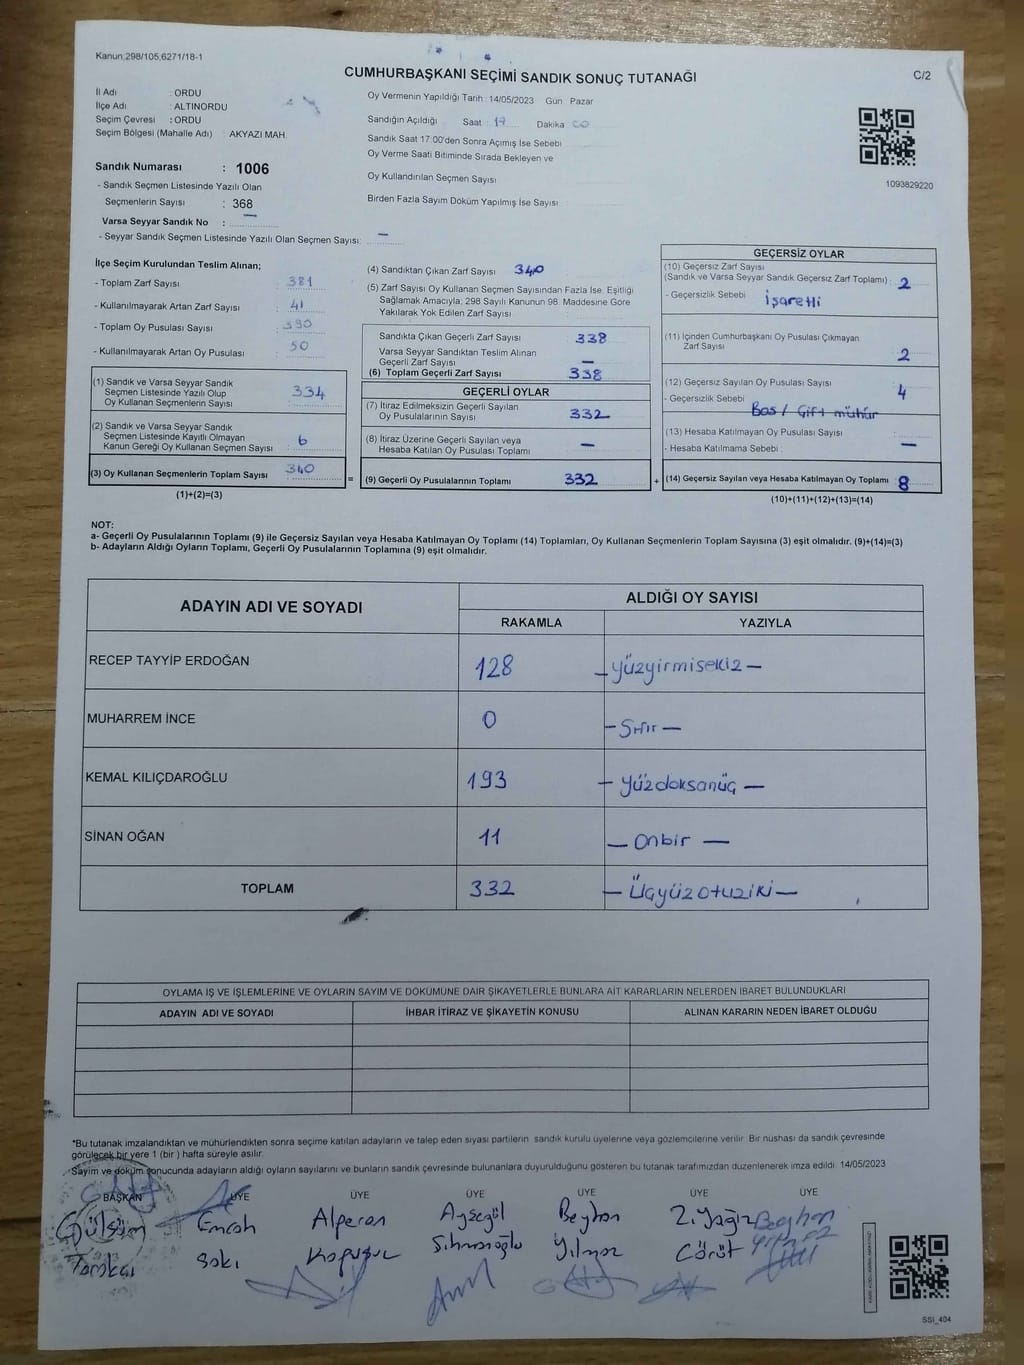 Kanun:298/105,6271/18-1
CUMHURBAŞKANI SEÇİMİ SANDIK SONUÇ TUTANAĞI
C/2
İl Adı : ORDU
İlçe Adı : ALTINORDU
Seçim Çevresi : ORDU
Seçim Bölgesi (Mahalle Adı) : AKYAZI MAH.
Oy Vermenin Yapıldığı Tarih : 14/05/2023 Gün : Pazar
Sandığın Açıldığı Saat : 17 Dakika : 00
Sandık Saat 17:00'den Sonra Açımış İse Sebebi
Oy Verme Saati Bitiminde Sırada Bekleyen ve
Oy Kullandırılan Seçmen Sayısı
Birden Fazla Sayım Döküm Yapılmış İse Sayısı :
1093829220
Sandık Numarası : 1006
- Sandık Seçmen Listesinde Yazılı Olan
Seçmenlerin Sayısı : 368
Varsa Seyyar Sandık No : —
- Seyyar Sandık Seçmen Listesinde Yazılı Olan Seçmen Sayısı: —
İlçe Seçim Kurulundan Teslim Alınan;
- Toplam Zarf Sayısı : 381
- Kullanılmayarak Artan Zarf Sayısı : 41
- Toplam Oy Pusulası Sayısı : 390
- Kullanılmayarak Artan Oy Pusulası : 50
(1) Sandık ve Varsa Seyyar Sandık
Seçmen Listesinde Yazılı Olup
Oy Kullanan Seçmenlerin Sayısı : 334
(2) Sandık ve Varsa Seyyar Sandık
Seçmen Listesinde Kayıtlı Olmayan
Kanun Gereği Oy Kullanan Seçmen Sayısı : 6
(3) Oy Kullanan Seçmenlerin Toplam Sayısı : 340
(1)+(2)=(3)
(4) Sandıktan Çıkan Zarf Sayısı : 340
(5) Zarf Sayısı Oy Kullanan Seçmen Sayısından Fazla İse, Eşitliği
Sağlamak Amacıyla; 298 Sayılı Kanunun 98. Maddesine Göre
Yakılarak Yok Edilen Zarf Sayısı :
Sandıkta Çıkan Geçerli Zarf Sayısı : 338
Varsa Seyyar Sandıktan Teslim Alınan
Geçerli Zarf Sayısı : —
(6) Toplam Geçerli Zarf Sayısı : 338
GEÇERLİ OYLAR
(7) İtiraz Edilmeksizin Geçerli Sayılan
Oy Pusulalarının Sayısı : 332
(8) İtiraz Üzerine Geçerli Sayılan veya
Hesaba Katılan Oy Pusulası Toplamı : —
= (9) Geçerli Oy Pusulalarının Toplamı : 332
GEÇERSİZ OYLAR
(10) Geçersiz Zarf Sayısı
(Sandık ve Varsa Seyyar Sandık Geçersiz Zarf Toplamı) : 2
- Geçersizlik Sebebi : işaretli
(11) İçinden Cumhurbaşkanı Oy Pusulası Çıkmayan
Zarf Sayısı : 2
(12) Geçersiz Sayılan Oy Pusulası Sayısı : 4
- Geçersizlik Sebebi : Boş / Çift mühür
(13) Hesaba Katılmayan Oy Pusulası Sayısı : —
- Hesaba Katılmama Sebebi :
+ (14) Geçersiz Sayılan veya Hesaba Katılmayan Oy Toplamı : 8
(10)+(11)+(12)+(13)=(14)
NOT:
a- Geçerli Oy Pusulalarının Toplamı (9) ile Geçersiz Sayılan veya Hesaba Katılmayan Oy Toplamı (14) Toplamları, Oy Kullanan Seçmenlerin Toplam Sayısına (3) eşit olmalıdır. (9)+(14)=(3)
b- Adayların Aldığı Oyların Toplamı, Geçerli Oy Pusulalarının Toplamına (9) eşit olmalıdır.
ADAYIN ADI VE SOYADI
ALDIĞI OY SAYISI
RAKAMLA YAZIYLA
RECEP TAYYİP ERDOĞAN 128 — yüzyirmisekiz —
MUHARREM İNCE 0 — Sıfır —
KEMAL KILIÇDAROĞLU 193 — yüzdoksanüç —
SİNAN OĞAN 11 — onbir —
TOPLAM 332 — Üçyüzotuziki —
OYLAMA İŞ VE İŞLEMLERİNE VE OYLARIN SAYIM VE DÖKÜMÜNE DAİR ŞİKAYETLERLE BUNLARA AİT KARARLARIN NELERDEN İBARET BULUNDUKLARI
ADAYIN ADI VE SOYADI İHBAR İTİRAZ VE ŞİKAYETİN KONUSU ALINAN KARARIN NEDEN İBARET OLDUĞU
*Bu tutanak imzalandıktan ve mühürlendikten sonra seçime katılan adayların ve talep eden siyasi partilerin sandık kurulu üyelerine veya gözlemcilerine verilir. Bir nüshası da sandık çevresinde
görülecek bir yere 1 (bir ) hafta süreyle asılır.
Sayım ve döküm sonucunda adayların aldığı oyların sayılarını ve bunların sandık çevresinde bulunanlara duyurulduğunu gösteren bu tutanak tarafımızdan düzenlenerek imza edildi. 14/05/2023
BAŞKAN ÜYE ÜYE ÜYE ÜYE ÜYE ÜYE
Gülsüm Emrah Alperen Ayşegül Beyhan Z.Yağız Beyhan
Yılmaz
SSI_404